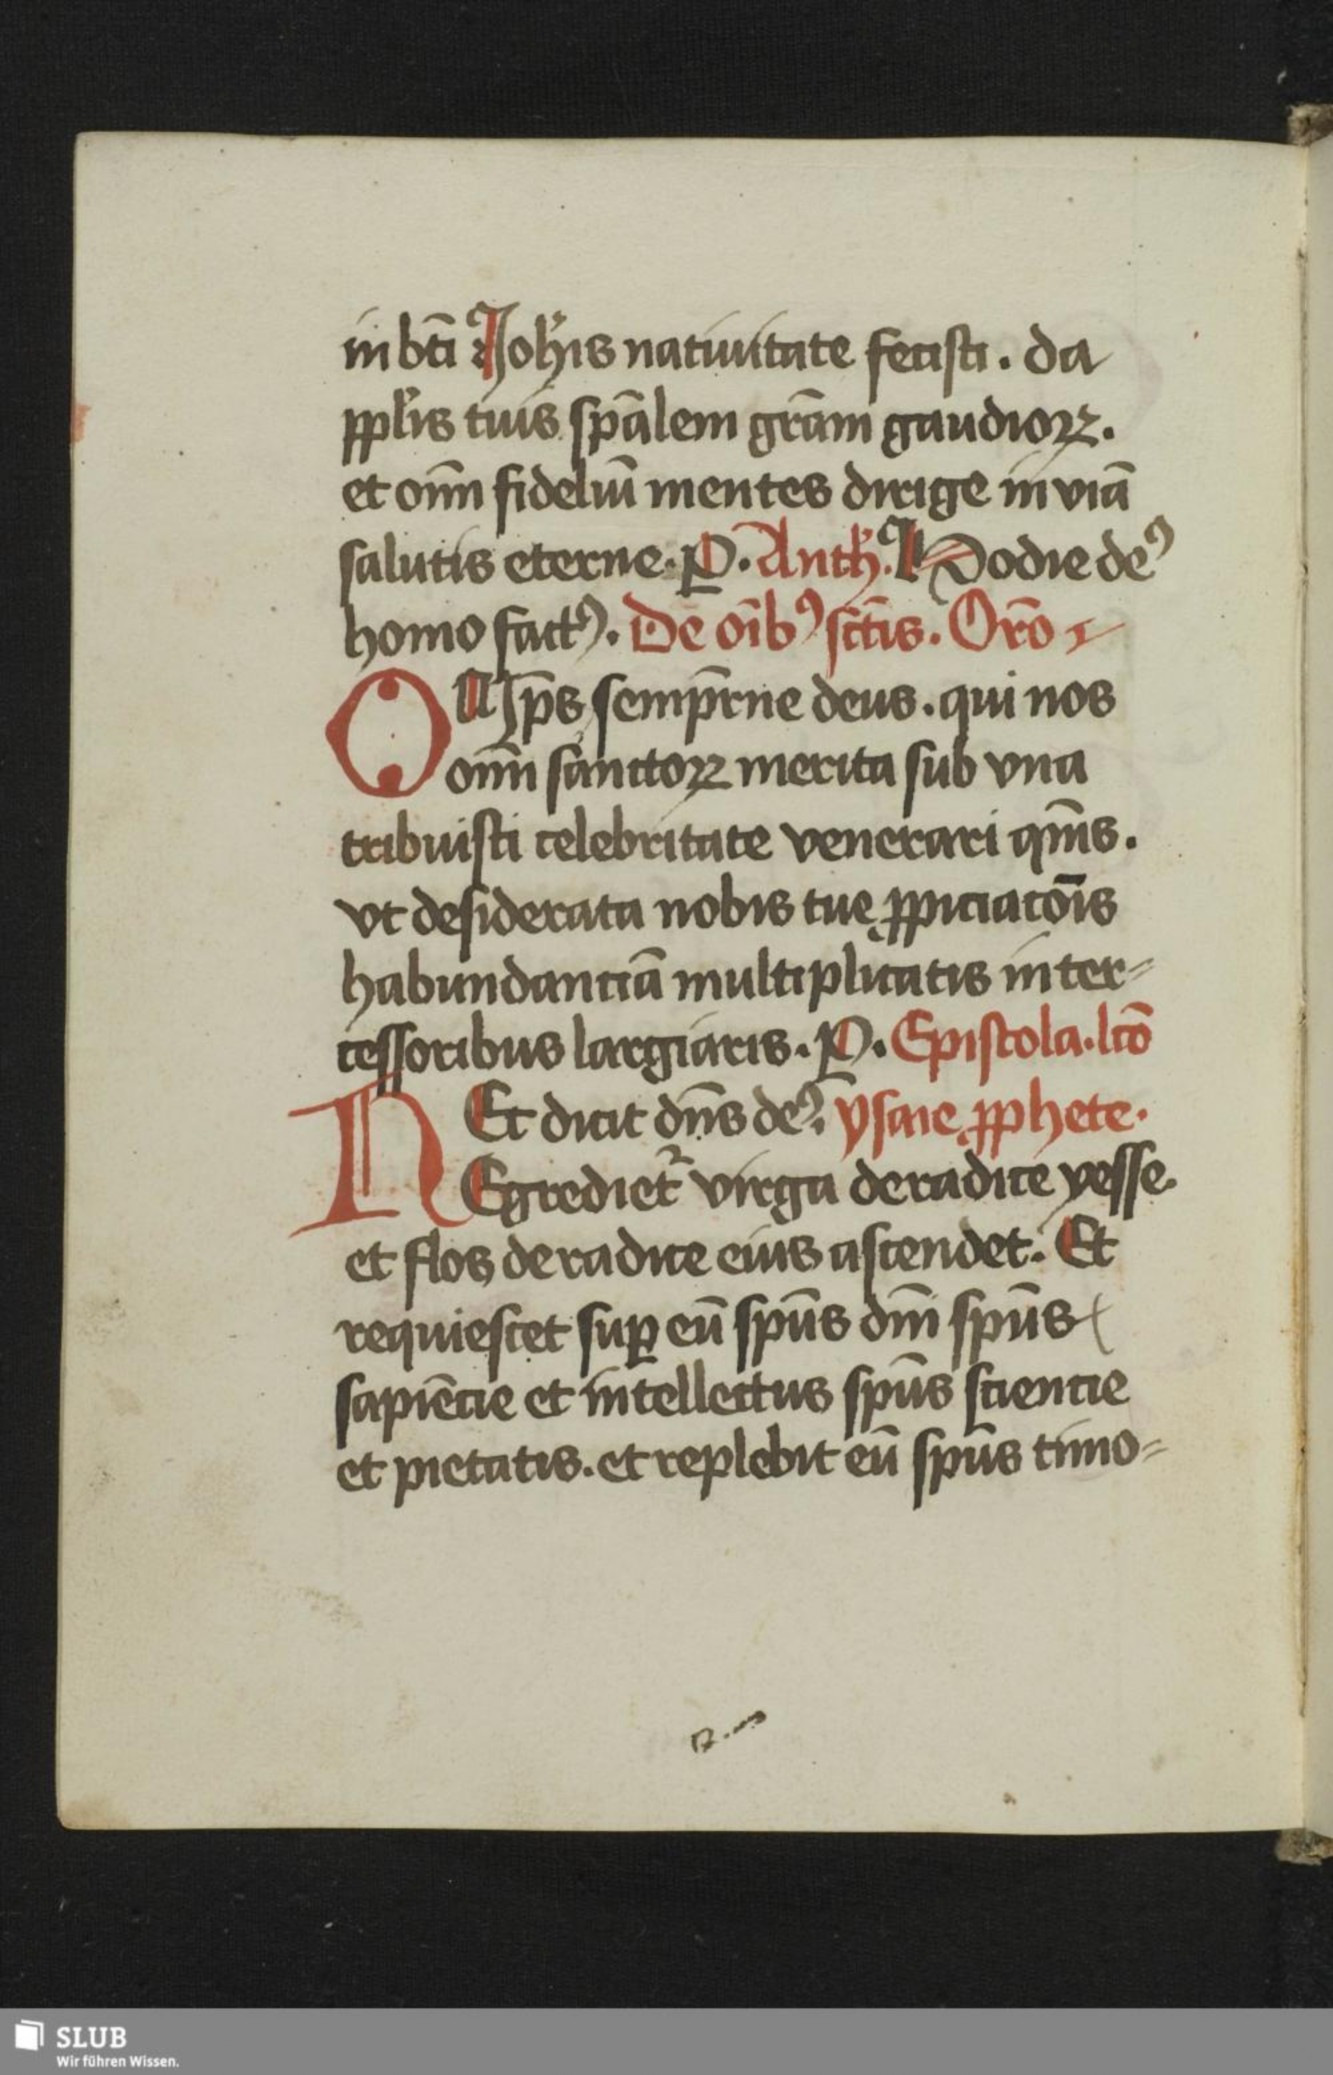 in bt̄i Joh̄is natiuitate fecisti. da
ppl̄is tuis sp̄alem gr̄am gaudioꝝ.
et om̄n fideliū mentes dirige in viā
salutis eterne. P. Anth̄. Hodie deꝰ
homo factꝰ. De oīb ꝰ sc̄tis. Or̄o
OMp̄s semp̄rne deus. qui nos
om̄n sanctoꝝ merita sub vna
tribuisti celebritate venerari qm̄s.
vt desiderata nobis tuę ꝓpiciacōis
habundanciā multiplicatis inter-
cessoribus largiaris. P. Epistola. lc̄o
HEc dicit dn̄s deꝰ. ysaie ꝓphete.
Egrediet᷑ virga de radice yesse.
et flos de radice eius ascendet. Et
requiescet suꝑ eū sp̄us dn̄i sp̄us
sapiēcie et intellectus sp̄us sciencie
et pietatis. et replebit eū sp̄us timo-
SLUB
Wir führen Wissen.